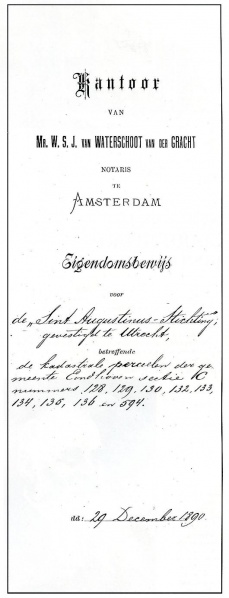 Kantoor
VAN
MR. W. S. J. VAN WATERSCHOOT VAN DER GRACHT
NOTARIS
TE
AMSTERDAM
Eigendomsbewijs
voor
de „Sint Augustinus-Stichting",
gevestigd te Utrecht,
betreffende
de kadastrale perceelen der ge-
meente Eindhoven sectie
nummers, 128, 129, 130, 132, 133,
134, 135, 136 en 594.
29 December 1890